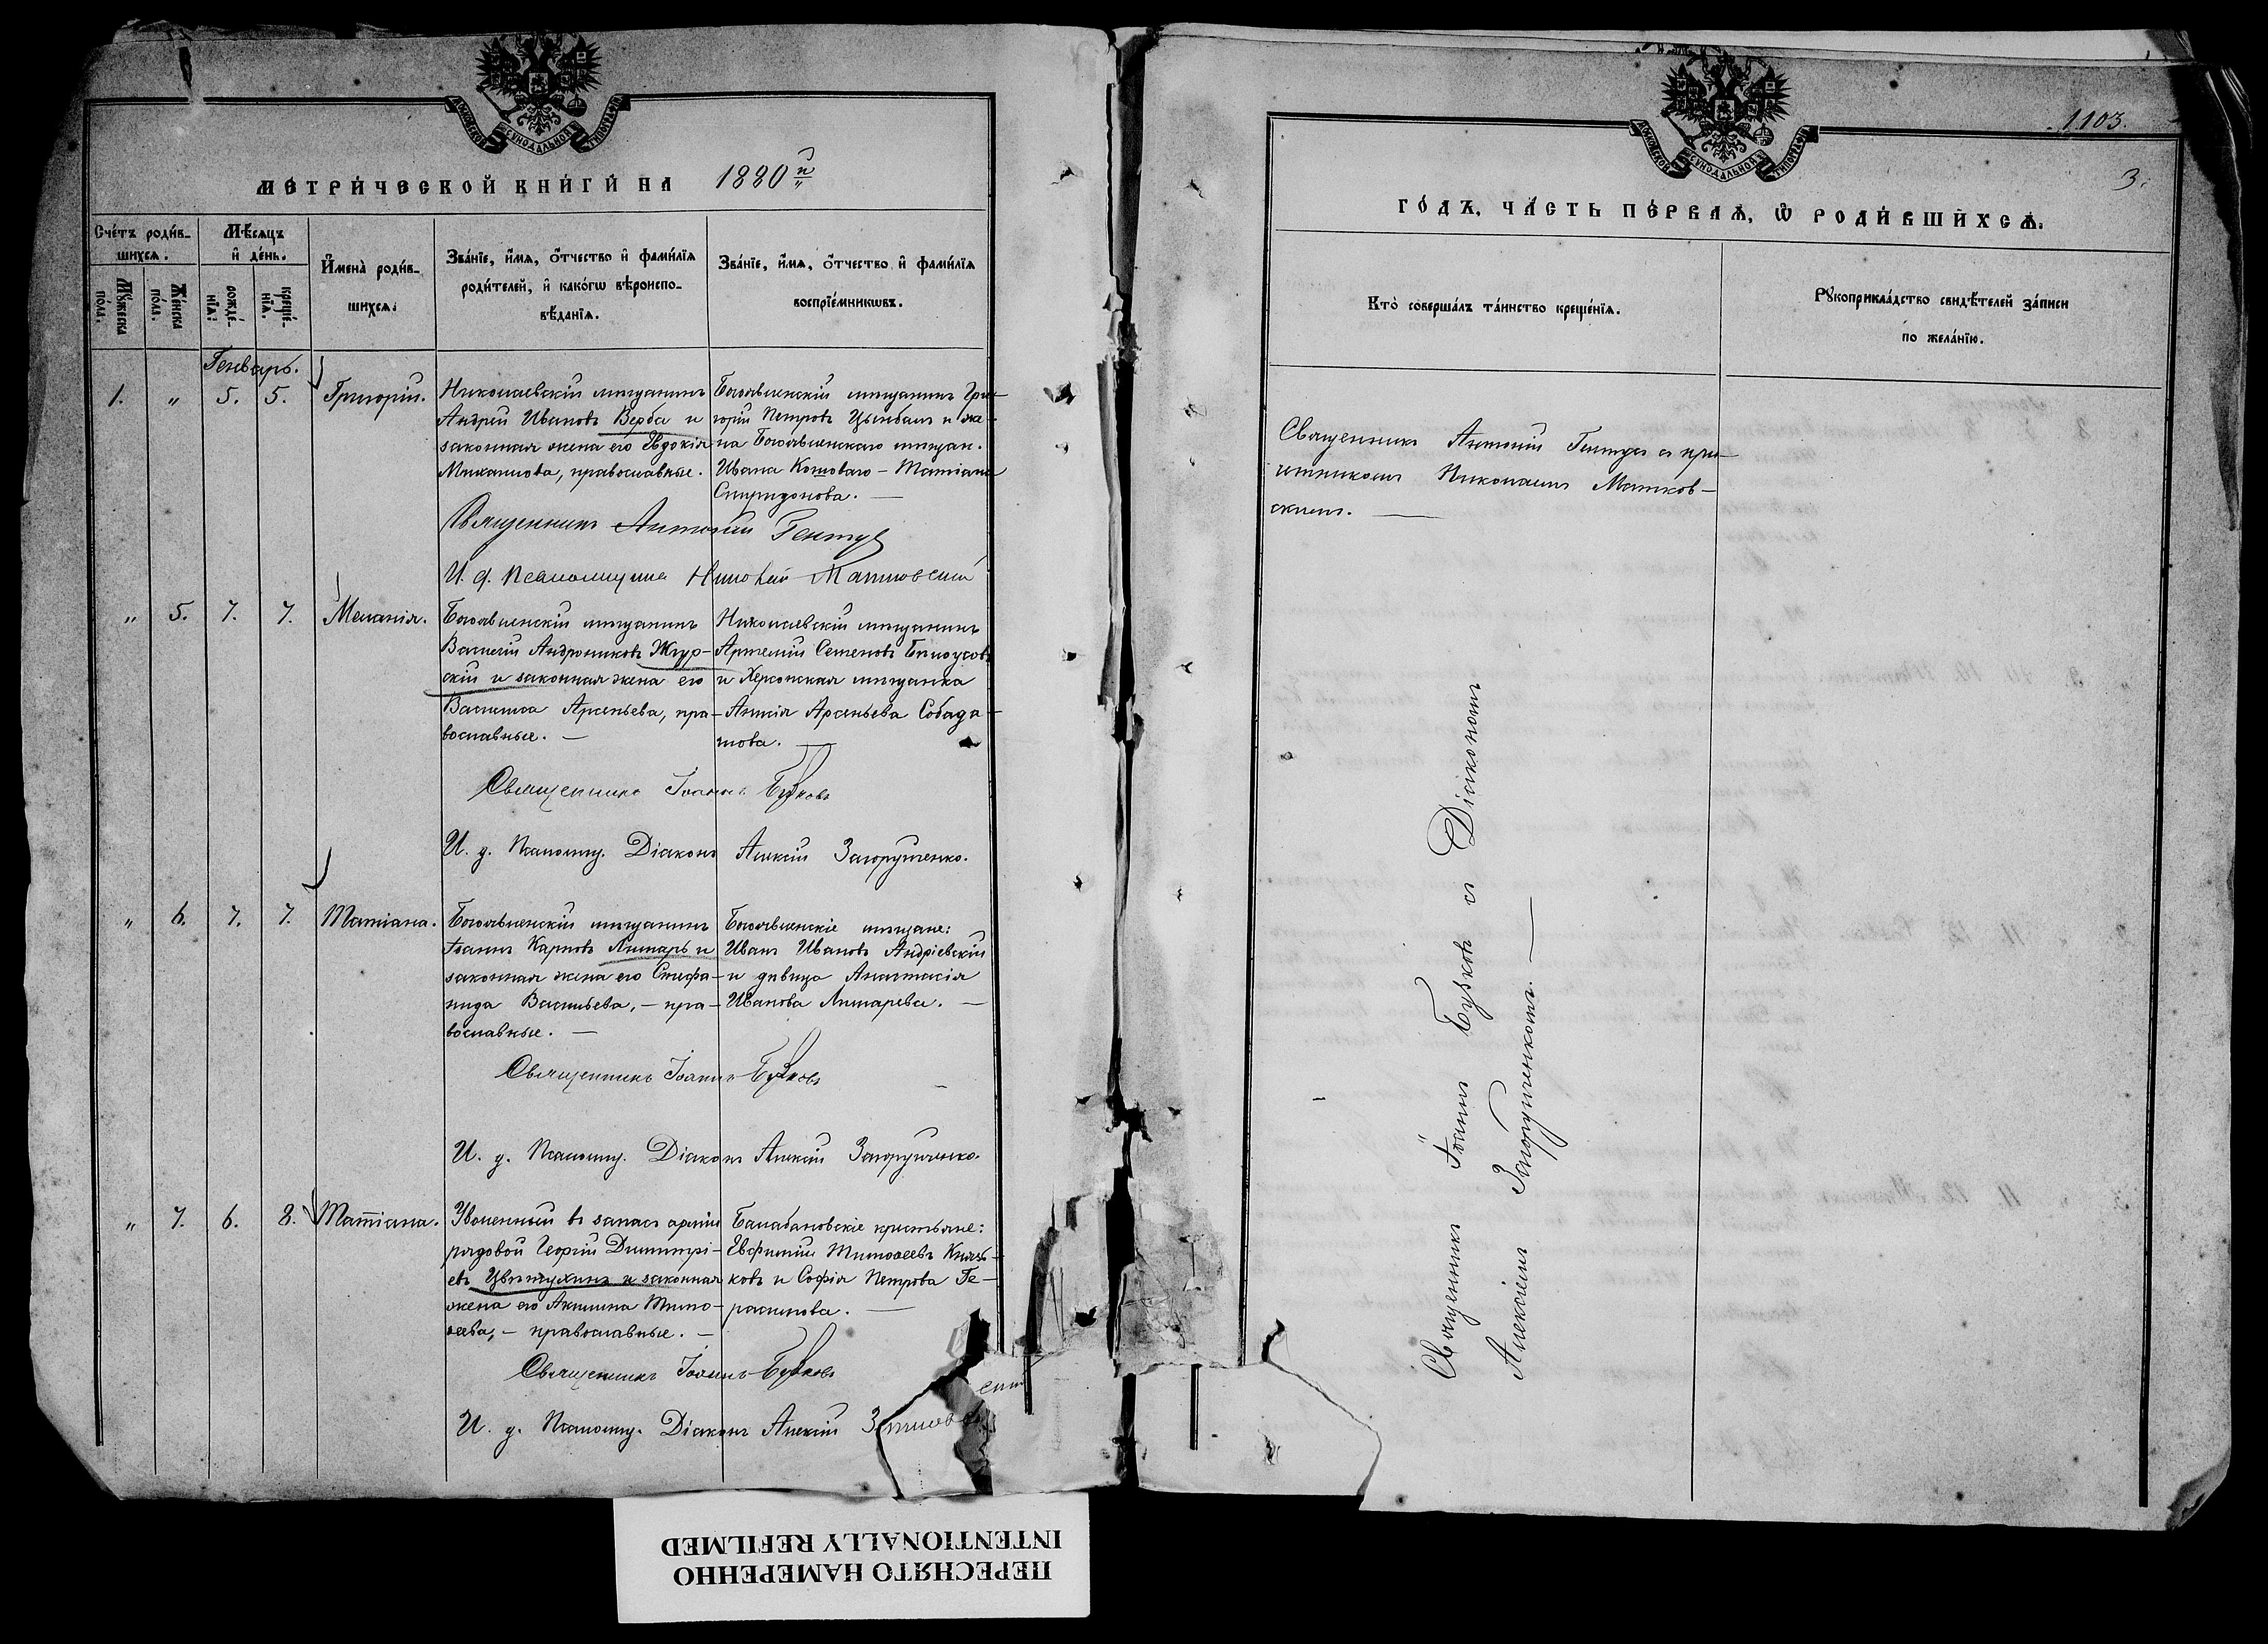 МОСКОВСКОЙ СУНОДАЛЬНОЙ ТИПОГРАФІИ
МЕТРИЧЕСКОЙ КНИГИ НА 1880й
Счетъ родив-
шихся.
Мѣсяцъ
и день.
Имена родив-
шихся.
Званіе, имя, отчество и фамилія
родителей, и какогѡ вѣроиспо-
вѣданія.
Званіе, имя, отчество и фамилія
воспріемникѡвъ.
Мужеска
пола.
Женска
пола.
рожде-
нія.
креще-
нія.
Генварь.
1. " 5. 5. Григорій.
Николаевскій мѣщанинъ
Андрей Ивановъ Верба и
законная жена его Евдокія
Михаилова, православные.
Богоявленскій мѣщанинъ Гри-
горій Петровъ Цымбалъ и же-
на Богоявленскаго мѣщан.
Ивана Кошоваго – Татіана
Спиридонова. —
Священникъ Антоній Гентуз
И. д. Псаломщика Николай Матковскій
" 5. 7. 7. Меланія.
Богоявленскій мѣщанинъ
Василій Андрониковъ Жур-
скій и законная жена его
Василиса Арсеньева, пра-
вославные. —
Николаевскій мѣщанинъ
Артемій Семеновъ Бѣлоусовъ
и Херсонская мѣщанка
Анисія Арсеньева Собада-
шова. —
Священникъ Іоаннъ Бузковъ
И. д. Псаломщ. Діаконъ Алексій Загорученко.
" 6. 7. 7. Татіана.
Богоявленскій мѣщанинъ
Іоаннъ Карповъ Лимарь и
законная жена его Стефа-
нида Васильева, – пра-
вославные. —
Богоявленскіе мѣщане:
Иванъ Ивановъ Андріевскій
и дѣвица Анастасія
Иванова Лимарева. —
Священникъ Іоаннъ Бузковъ
И. д. Псаломщ. Діаконъ Алексій Загорученко.
" 7. 6. 8. Татіана.
Уволенный въ запасъ арміи
рядовой Георгій Димитрі-
евъ Цвѣтухинъ и законная
жена его Акилина Тимо-
ѳеева, – православные. —
Балабановскіе крестьяне:
Евфимій Тимоѳеевъ Князь-
ковъ и Софія Петрова Ге-
расимова. —
Священникъ Іоаннъ Бузковъ
И. д. Псаломщ. Діаконъ Алексій
МОСКОВСКОЙ СУНОДАЛЬНОЙ ТИПОГРАФІИ
1103.
3.
ГОДЪ, ЧАСТЬ ПЕРВАЯ, Ѡ РОДИВШИХСЯ.
Кто совершалъ таинство крещенія.
Рукоприкладство свидѣтелей записи
по желанію.
Священникъ Антоній Гентуз съ при-
четникомъ Николаемъ Матков-
скимъ. —
Священникъ Іоаннъ Бузковъ съ Діакономъ
Алексіемъ Загорученкомъ. —
ПЕРЕСНЯТО НАМЕРЕННО
INTENTIONALLY REFILMED